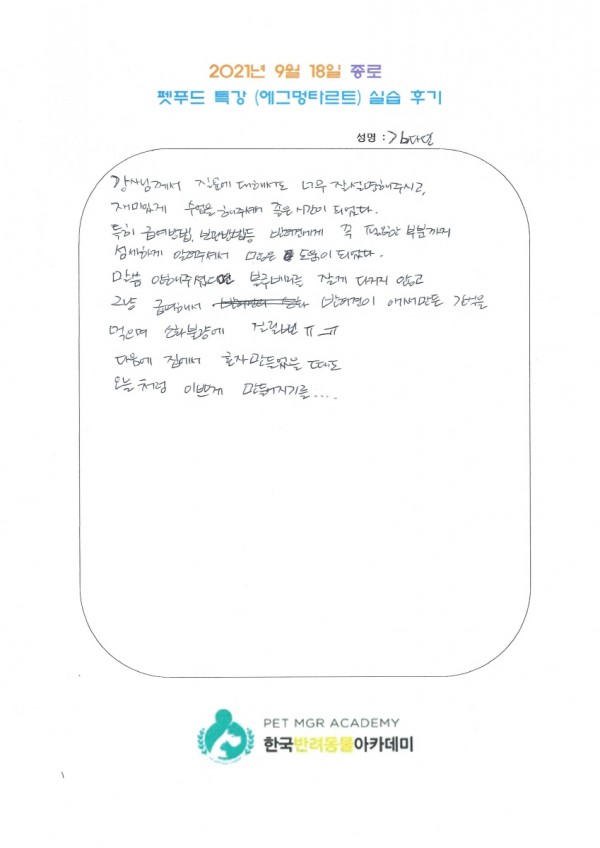 2021년 9월 18일 종로
펫푸드 특강 (에그멍타르트) 실습 후기
성명 : 김다연
강사님께서 질문에 대해서도 너무 잘 설명해주시고,
재미있게 수업을 해주셔서 좋은 시간이 되었다.
특히 급여방법, 보관방법등 반려견에게 꼭 필요한 부분까지
섬세하게 알려주셔서 많은 도움이 되었다.
말씀 안해주셨으면 블루베리를 잘게 다지지 않고
그냥 급여해서 반려견이 애써만든 간식을
먹으며 소화불량에 걸릴뻔 ㅠ_ㅠ
다음에 집에서 혼자 만들었을 때도
오늘처럼 이쁘게 만들어지기를....
PET MGR ACADEMY
한국반려동물아카데미